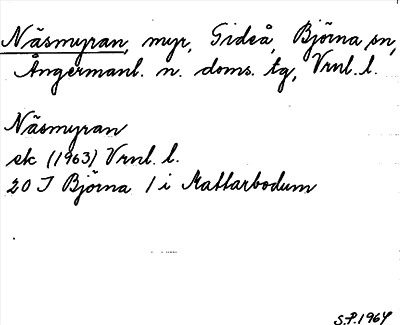 Näsmyran, myr, Gideå, Björna sn,
Ångermanl. n. doms. tg, Vrnl. l.
Näsmyran
ek (1963) Vrnl. l.
20 I Björna 1 i Mattarbodum
S.P. 1964